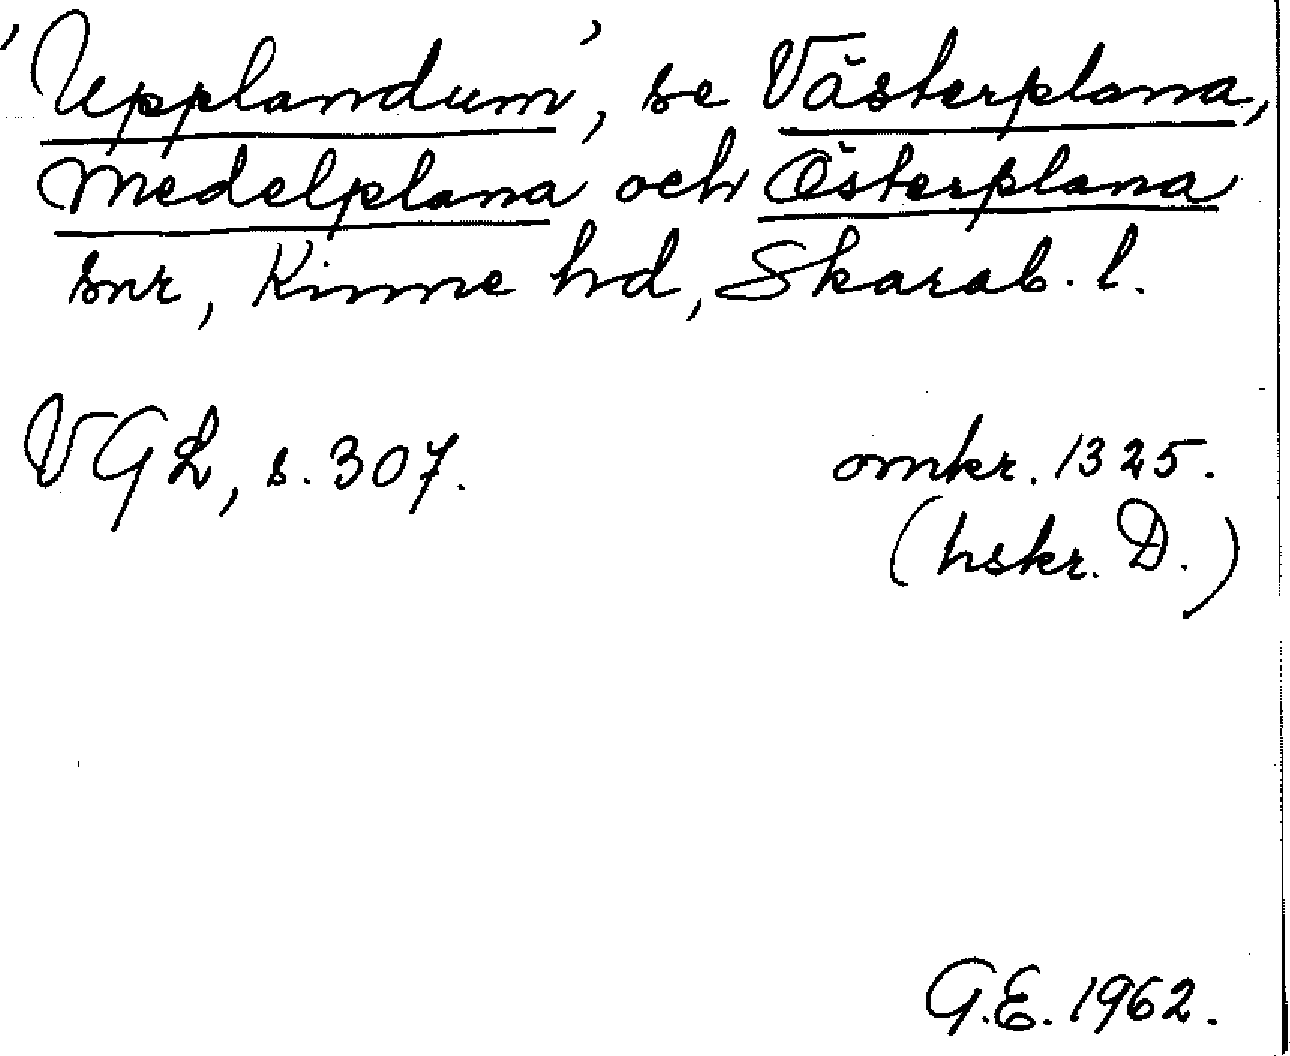 'Upplandum', se Västerplana,
Medelplana och Österplana
snr, Kinne hd, Skarab. l.
VGL, s. 307. omkr. 1325.
(hskr. D.)
G.E. 1962.